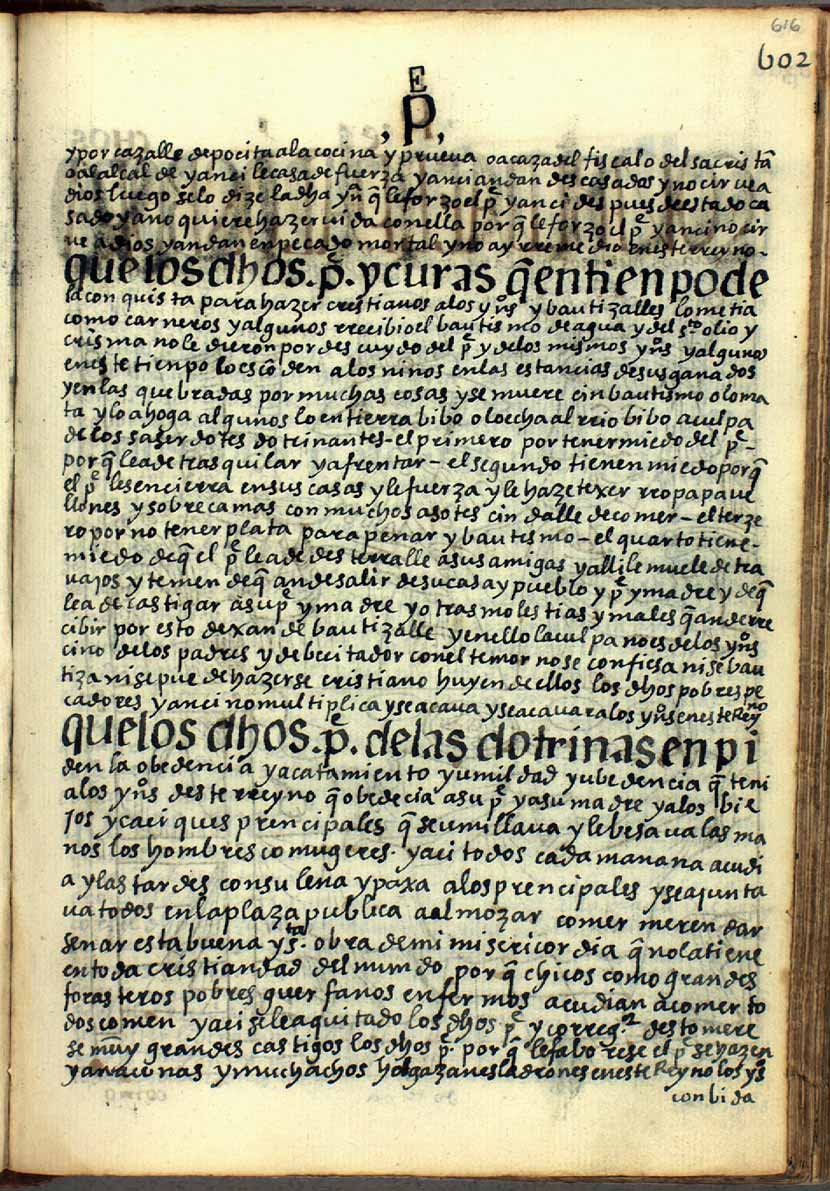 616
602
E
, p̃ ,
y por cazalle depocita a la cocina y prueua o a caza del fiscal o del sacristã
o al alcalde y anci le casa de fuerza y anci andan descasados y no cirue a
dios luego se lo dize la dha yñ q̃ le forzo el p̃ y anci despues de estado ca
sado ya no quiere hazer uida con ella por q̃ le forzo el p̃ y anci no cir
ue a dios y andan en pecado mortal y no ay rremedio en este rreyno -
que los dhos . p̃ . y curas q̃ en tienpo de
la con quista para hazer cristianos a los yn̊s y bautizalles lo metia
como carneros y algunos rrecibio el bautismo de agua y del s^to olio y
crisma no le dieron por descuydo del p̃ y de los mismos yn̊s y algunos
en este tienpo lo escõden a los ninos en las estancias de sus ganados
y en las quebradas por muchas cosas y se muere cin bautismo o lo ma
ta y lo ahoga algunos lo entierra bibo o lo echa al rrio bibo a culpa
de los saserdotes dotrinantes - el primero por tener miedo del p̃ -
por q̃ le a de trasquilar y afrentar - el segundo tienen miedo porq̃
el p̃ les encierra en sus casas y le fuerza y le haze texer rropa paue
llones y sobrecamas con muchos asotes cin dalle de comer - el terze
ro por no tener plata para penar y bautismo - el quarto tiene -
miedo de q̃ el p̃ le a de desterralle a sus amigas y alli le muele de tra
uajos y temen de q̃ an de salir de su casa y pueblo y p̃ y madre y de q̃
le a de castigar a su p̃ y madre y otras molestias y males q̃ an de rre
cibir por esto dexan de bautizalle y en ello la culpa no es de los yn̊s
cino de los padres y de becitador con el temor no se confiesa ni se bau
tiza ni se puede hazerse cristiano huyen de ellos los dhos pobres pe
cadores y anci no multiplica y se acaua y se acauara los yn̊s en este Rey^no
que los dhos . p̃ . de las dotrinas en pi
den la obedencia y acatamiento y umildad y ubedencia q̃ teni
a los yn̊s deste rreyno q̃ obedecia a su p̃ y a su madre y a los bie
jos y caciques prencipales q̃ se umillaua y le besaua las ma
nos los hombres como mugeres . y aci todos cada manana acudi
a y las tardes con su lena y paxa a los prencipales y se ajunta
ua todos en la plaza publica a almozar comer merendar
senar esta buena y s^ta . obra de mi misericordia q̃ no la tiene
en toda cristiandad del mundo por q̃ chicos como grandes
forasteros pobres guerfanos enfermos acudian a comer to
dos comen y aci se le a quitado los dhos p̃ y correg.^r desto mere
se muy grandes castigos los dhos p̃ . por q̃ le faborese el p̃ se hazen
yanaconas y muchachos holgazanes ladrones en este Reyno los ys
conbida